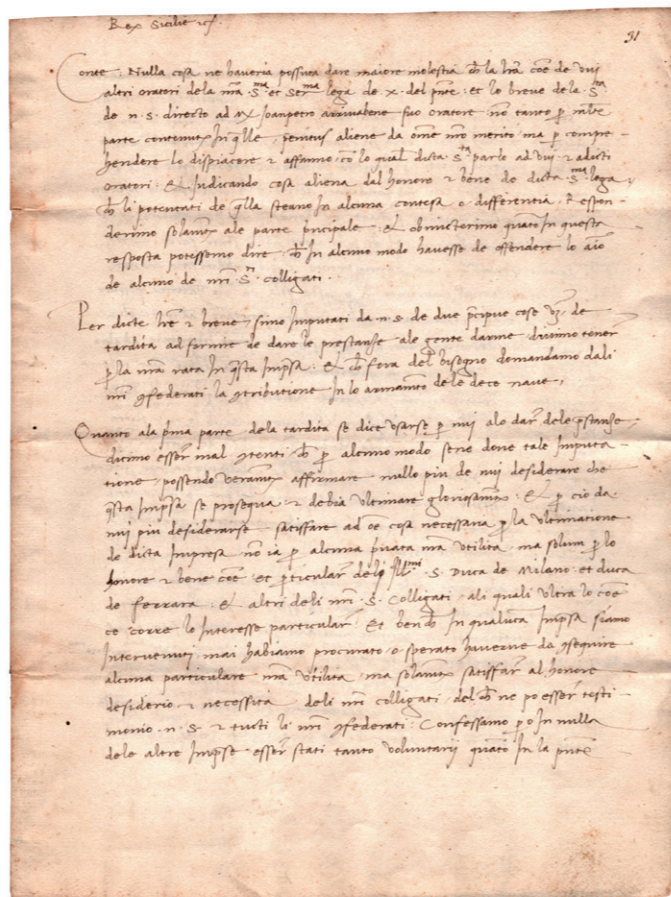 Rex Sicilie etc.
31
Conte: Nulla cosa ne haveria possuta dare maiore molestia ch la lra coe de vuj
altri oratori dela nra S.ma et Ser.ma lega de x. del pnte: et lo breve dela S.ta
de n. s. directo ad M. Joanpetro arrivabene suo oratore no tanto p
parte contenute In qlle, penitus aliene da omne nro merito, ma p compre-
hendere lo dispiacere et affanno, co lo qual dicta S.ta parlo ad vuj et adicti
oratori: Et Judicando cosa aliena dal honore et bene de dicta S.ma lega,
ch li potentati de qlla steano In alcuna contesa o differentia, respon-
derimo solamte ale parte pncipale: et obmicterimo quato In questa
resposta potessemo dire, ch In alcuno modo havesse de offendere lo aio
de alcuno de nri S.ri colligati.
Per dicte lre et breve, simo Imputati da n. s. de due pncipue cose vz. de
tardita ad fornire de dare le prestanse ale gente darme, divimo tener
p la nra rata In qsta Impsa: Et ch fora del bisogno demandamo dali
nri 9federati la 9tributione In lo armamto dele dece nave,
Quanto ala pma parte dela tardita se dice usarse p nuj alo dar dele pstanse,
dicimo esser mal 9tenti ch p alcuno modo sene done tale Imputa-
tione, possendo veramte affirmare nullo piu de nuj desiderare che
qsta Impsa se prosequa, et debia ultimare gloriosamte: Et p cio da
nuj piu desiderarse satisfare ad oe cosa necessaria p la ultimatione
de dicta Impresa, no ia p alcuna pivata nra utilita, ma solum p lo
honore et bene coe, et pticular deli Ill.mi S. Duca de Milano, et duca
de ferrara: et altri deli nri S. Colligati, ali quali ultra lo coe
ce corre lo Interesse particular. Et bench In qualuca Impsa siamo
Intervenuti, mai habiamo procurato o sperato haverne da 9sequire
alcuna particulare nra utilita, ma solamte satisfar al honore
desiderio et necessita deli nri colligati, del ch ne po esser testi-
monio n. s. et tucti li nri 9federati: Confessamo po In nulla
dele altre Impse esser stati tanto voluntarij quato In la pnte